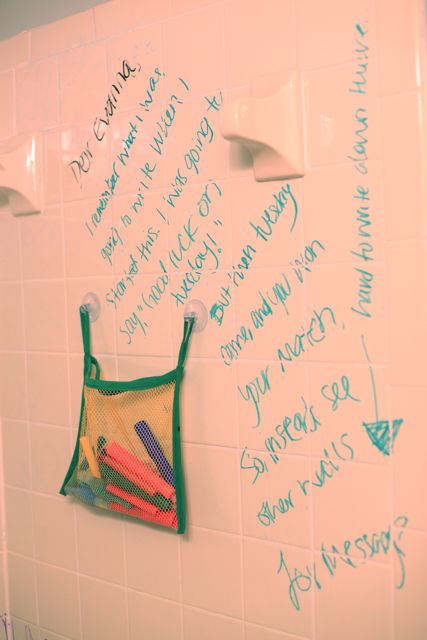 Dear Evanna,
I remember what I was
going to write when I
started this. I was going to
say, "Good luck on
tuesday!"
But then tuesday
came, and you won
your match.
So, instead, see
other walls
for message.
hard to write down there